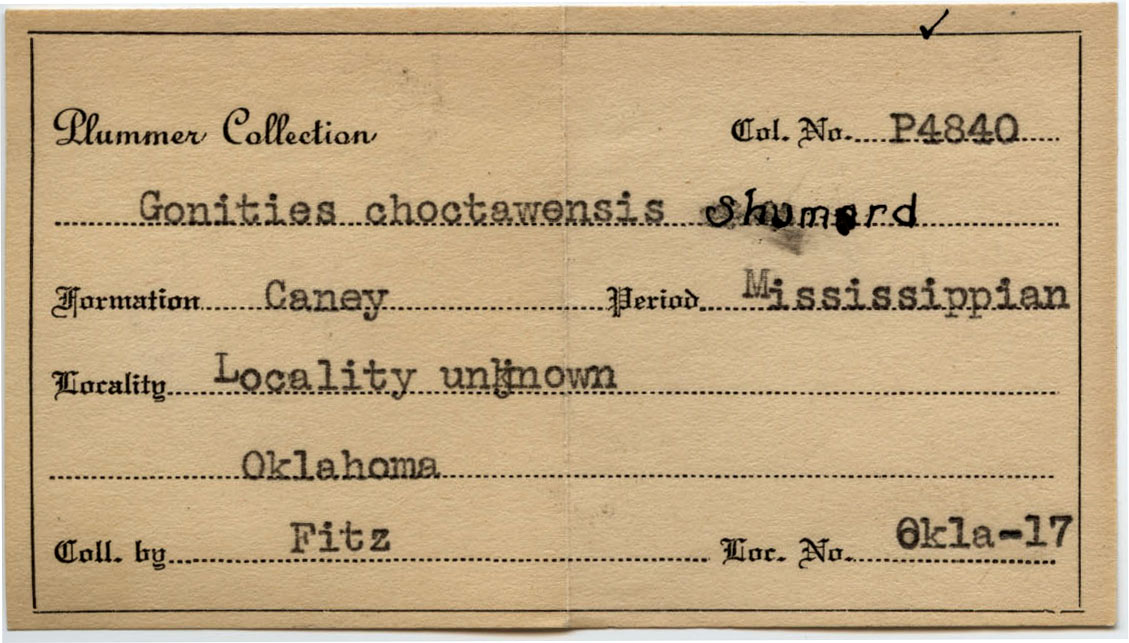 Plummer Collection Col. No. P4840
Gonities choctawensis Shumard
Formation Caney Period Mississippian
Locality Locality unknown
Oklahoma
Coll. by Fitz Loc. No. Okla-17